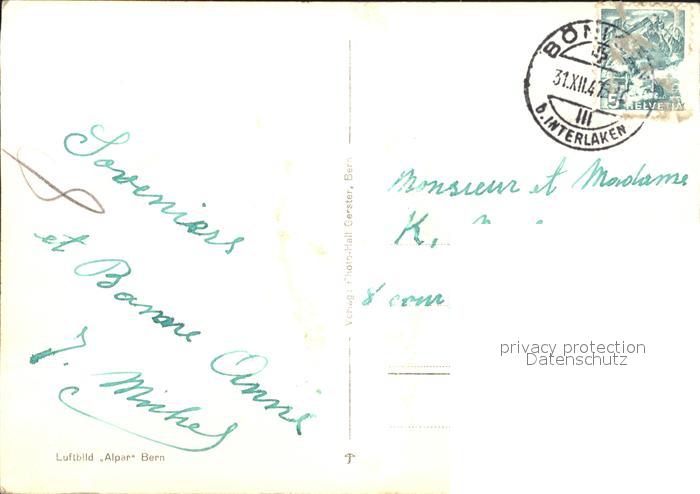 Soveniers
et Bonne Année
J. Michel
Luftbild „Alpar“ Bern
Verlag: Photo-Hall Gerster, Bern
BÖN
31.XII.47
III
b. INTERLAKEN
5 HELVETIA
Monsieur et Madame
K.
8 cour
privacy protection
Datenschutz